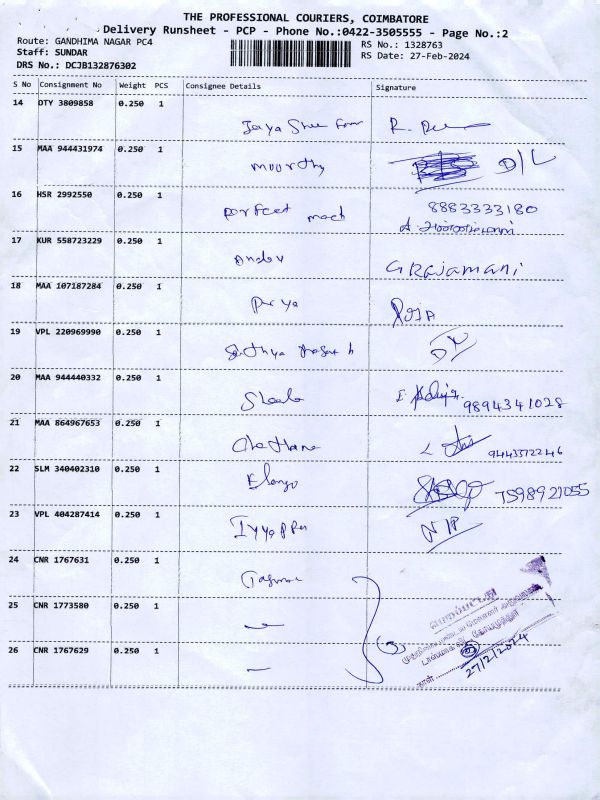 THE PROFESSIONAL COURIERS, COIMBATORE
Delivery Runsheet - PCP - Phone No.:0422-3505555 - Page No.:2
Route: GANDHIMA NAGAR PC4
RS No.: 1328763
Staff: SUNDAR
RS Date: 27-Feb-2024
DRS No.: DCJB132876302
S No Consignment No Weight PCS Consignee Details Signature
14 DTY 3809858 0.250 1
Jaya Shree R.
15 MAA 944431974 0.250 1
moorthy D/L
16 HSR 2992550 0.250 1
perfect mach 8883333180
17 KUR 558723229 0.250 1
G Rajamani
18 MAA 107187284 0.250 1
Priya Roja
19 VPL 220969990 0.250 1
Sathya
20 MAA 944440332 0.250 1
Sheela 9894341028
21 MAA 864967653 0.250 1
Chethana 9443372246
22 SLM 340402310 0.250 1
Elango 7598921055
23 VPL 404287414 0.250 1
Iyyappan N/P
24 CNR 1767631 0.250 1
Tasmac
25 CNR 1773580 0.250 1
26 CNR 1767629 0.250 1
பெறப்பட்டது
நாள் 27/2/2024